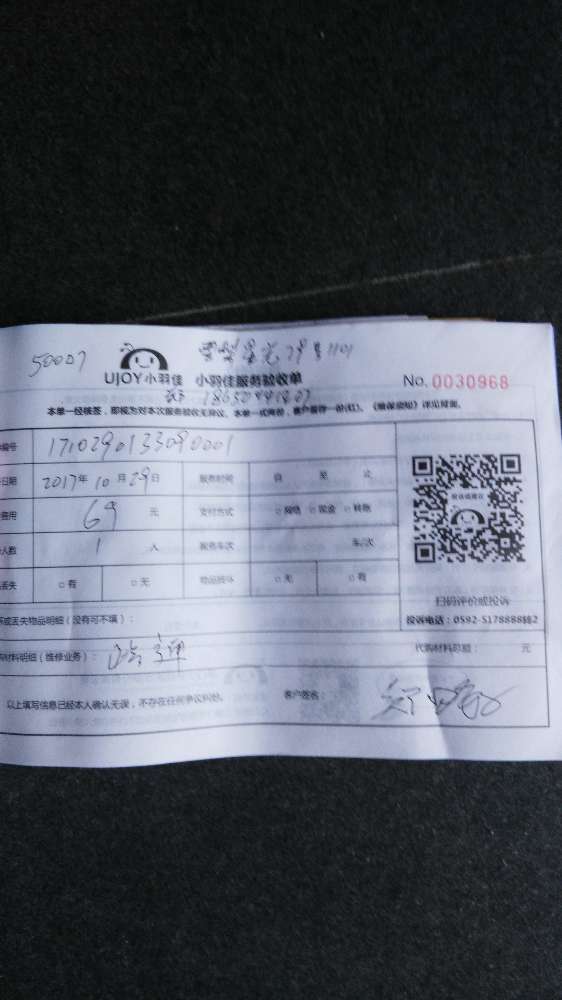 50007
UJOY小羽佳 小羽佳服务验收单 No.0030968
本单一经核签，即视为对本次服务验收无异议。本单一式两份，客户留存一份(红)。《维保须知》详见背面。
编号 1710290133090001
日期 2017年10月29日 服务时间 自 至 止
费用 69 元 支付方式 □网络 □现金 □转账
人数 1 人 服务车次 车/次
丢失 □有 □无 物品损坏 □无 □有
扫码评价或投诉
投诉电话：0592-5178888转2
坏或丢失物品明细（没有可不填）：
材料明细（维修业务）： 代购材料总额： 元
以上填写信息已经本人确认无误，不存在任何争议纠纷。 客户签名：